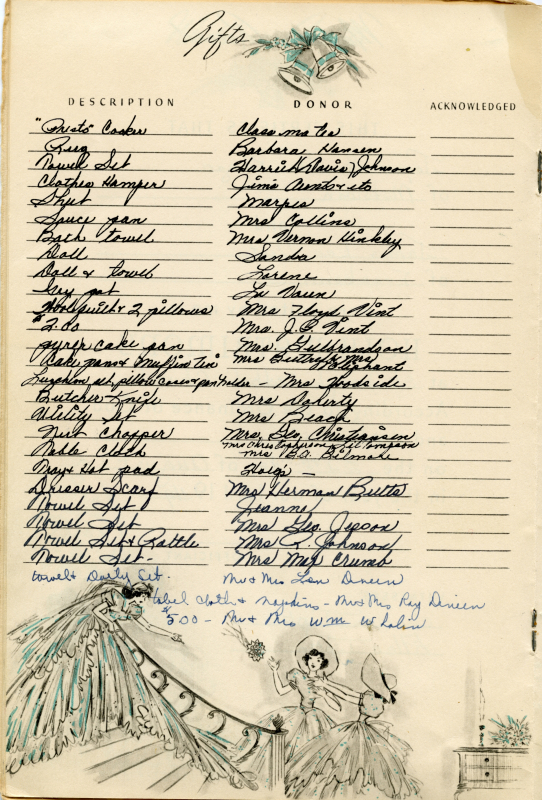 Gifts
DESCRIPTION DONOR ACKNOWLEDGED
"Presto" Cooker Classmates
Rug Barbara Hansen
Towel Set Harriet Davis Johnson
Clothes Hamper Jim's Aunts & etc
Sheet Marpes
Sauce pan Mrs Collins
Bath towel Mrs Vernon Hinkley
Doll Sandra
Doll & towel Lorene
La Vaun
Wool quilt & 2 pillows Mrs Floyd Vint
$2.00 Mrs. J.C. Vint
syrup cake pan Mrs. Gulbrandson
Cake pan & Muffin Tin Mrs
Oliphant
set, pillow cases & pan holder - Mrs Woodside
Butcher Knife Mrs Doherty
Utility Set Mrs Beach
Nut Chopper Mrs. Geo. Christiansen
Table Cloth Mrs Chris
Mrs B.O. Bilmore
Tray & Hot pad Helgi -
Dresser Scarf Mrs Herman Butts
Towel Set Jeanne
Towel Set Mrs Geo. Jepson
Towel Set & Rattle Mrs L. Johnson
Towel Set. Mrs Max Crumb
towel & Doily Set. Mr & Mrs Len Dineen
tabel Cloth & napkins - Mr & Mrs Ray Dineen
$5.00 - Mr & Mrs Wm Whalin